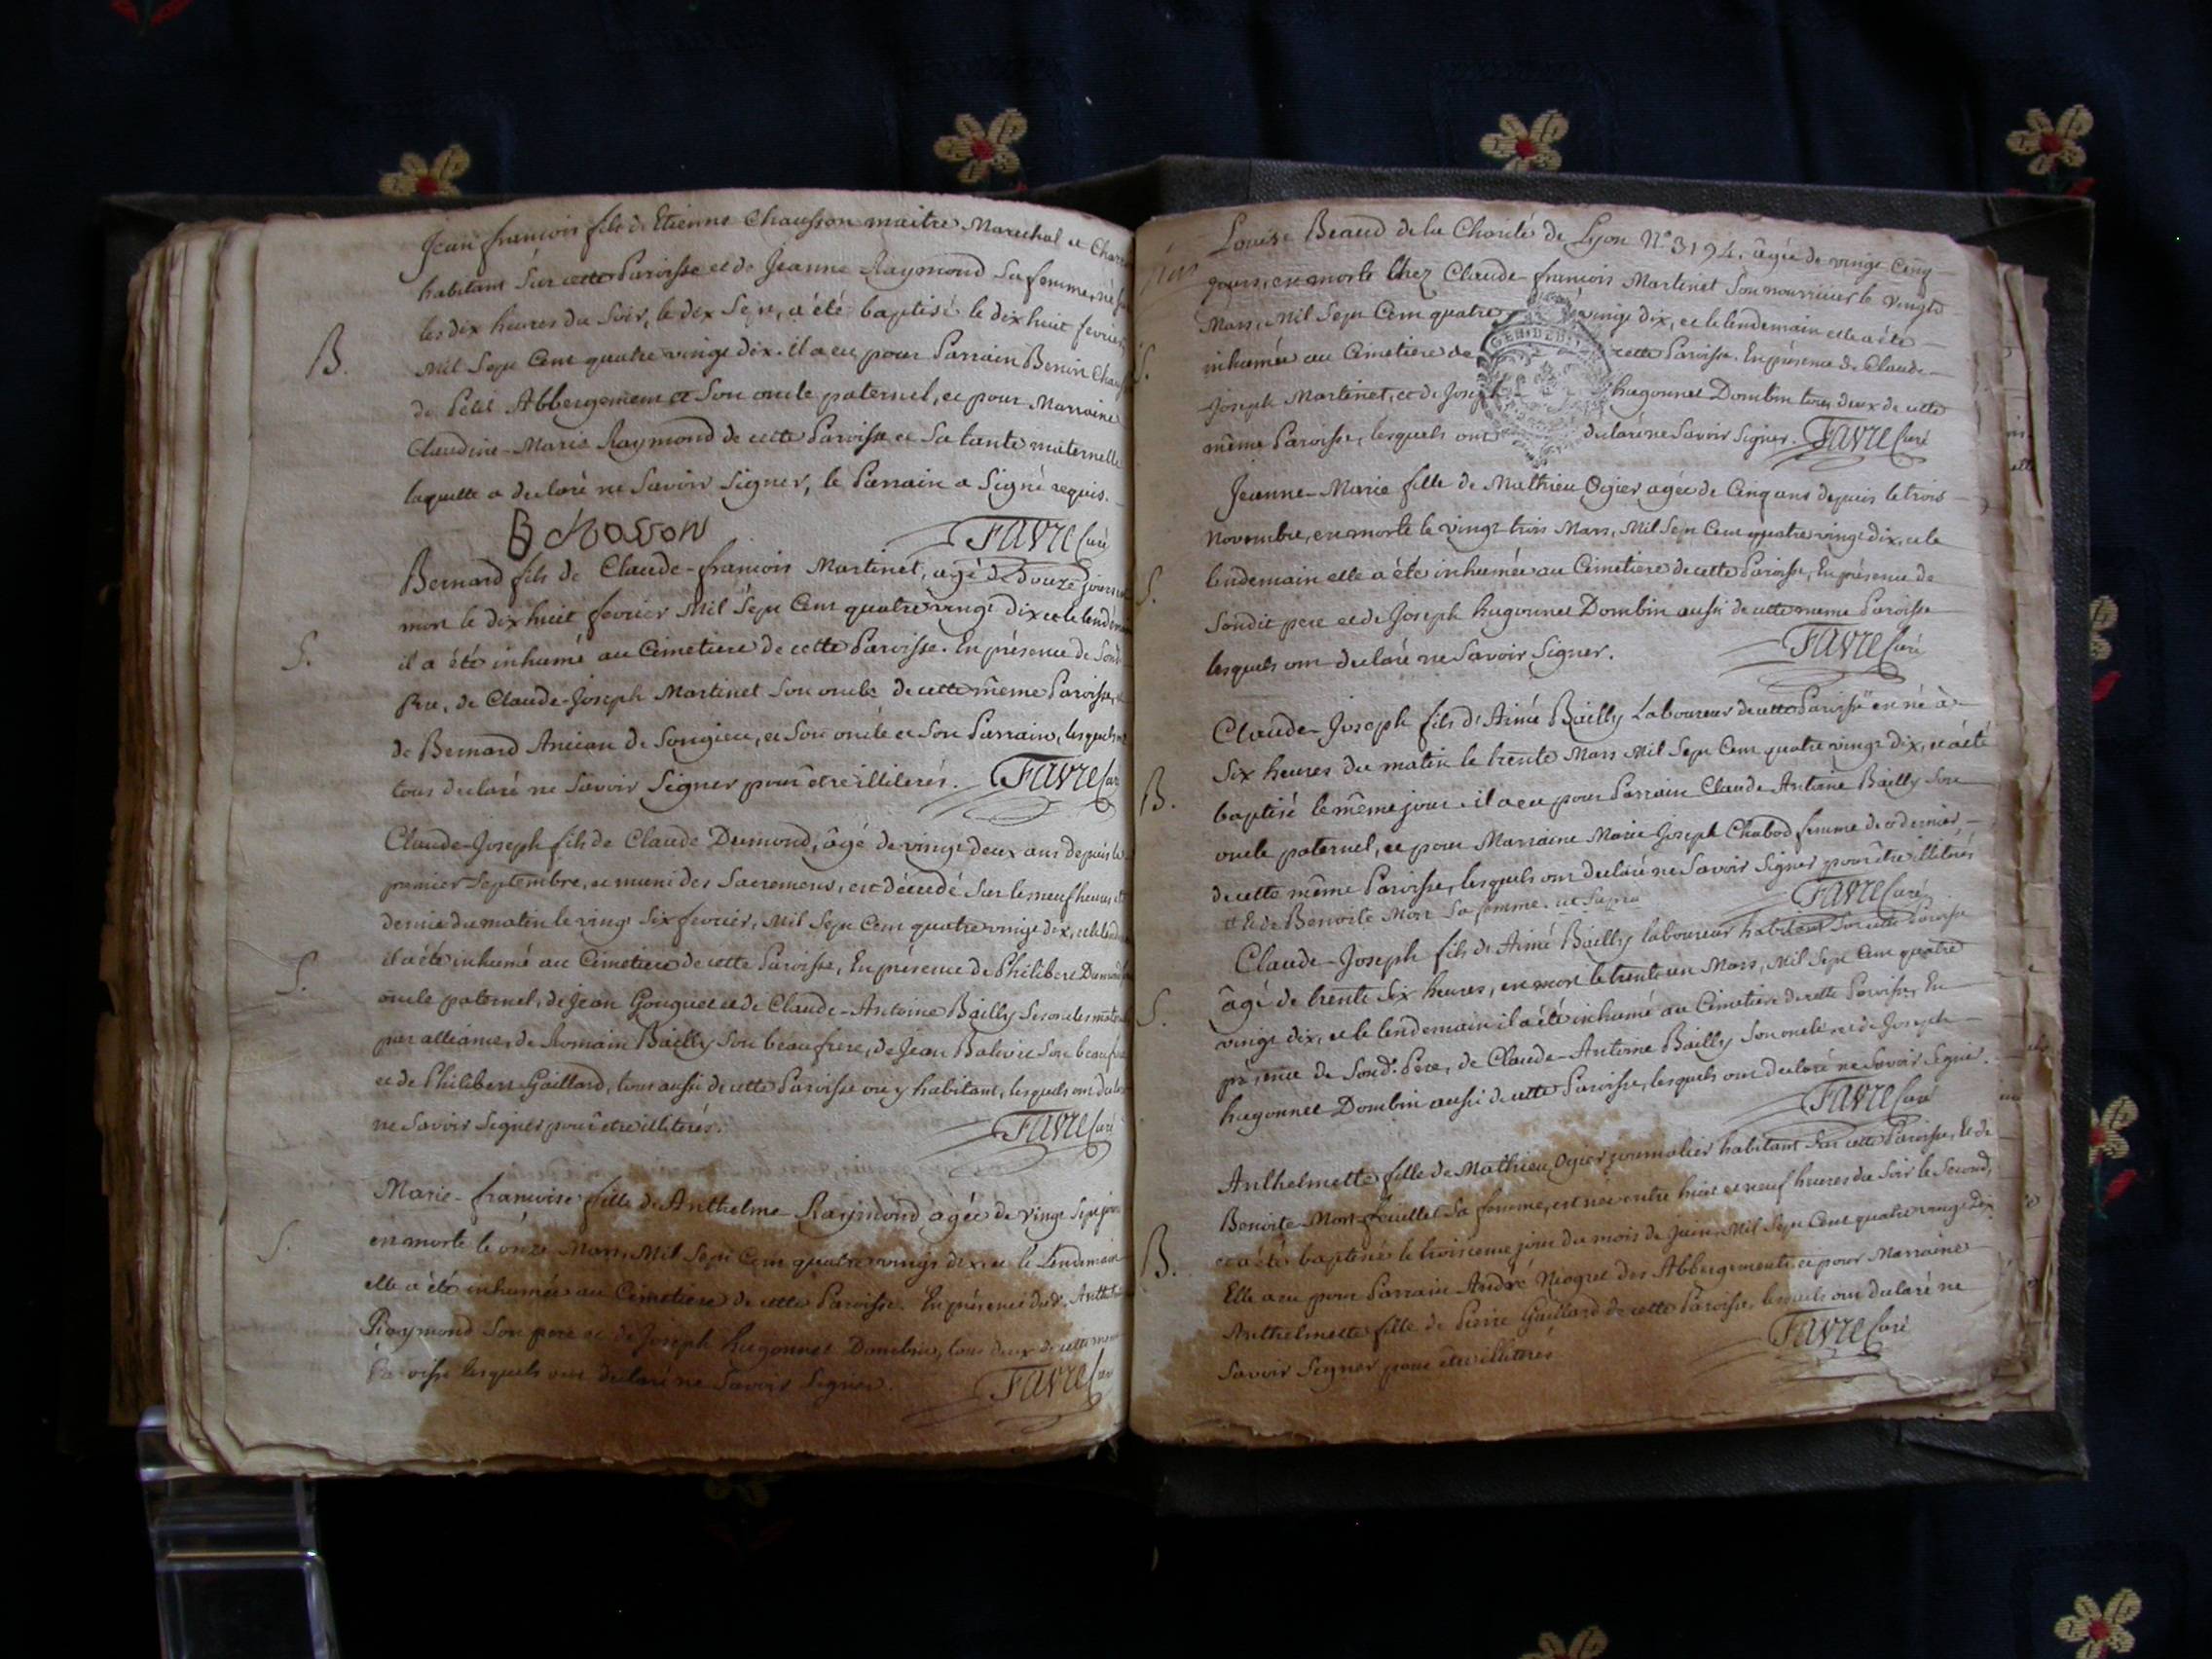 Jean françois fils de Etienne Chausson maitre Marechal et
habitant sur cette Paroisse et de Jeanne Raymond sa femme, né
les dix heures du soir, le dix sept, a été baptisé le dix huit fevrier
B.
Mil Sept Cent quatre vingt dix. il a eu pour Parrain Benoit
du Petit Abbergement et son oncle paternel, et pour Marraine
Claudine-Marie Raymond de cette Paroisse et sa tante maternelle
laquelle a declaré ne savoir signer, le Parrain a signé requis.
B Chosson FAVRE Curé
Bernard fils de Claude-françois Martinet, agé de douze jours
mort le dix huit fevrier Mil Sept Cent quatre vingt dix et le
S.
il a été inhumé au Cimetiere de cette Paroisse. En présence de
Pere, de Claude-Joseph Martinet son oncle de cette même Paroisse,
de Bernard Ancian de Songieu, et son oncle et son Parrain, lesquels
tous declaré ne savoir signer pour être illiterés. FAVRE Curé
Claude-Joseph fils de Claude Dumond, âgé de vingt deux ans depuis le
premier Septembre, et muni des Sacremens, est décédé sur les neuf heures et
demie du matin le vingt six fevrier, Mil Sept Cent quatre vingt dix, et le
S.
il a été inhumé au Cimetiere de cette Paroisse, En présence de Philibert
oncle paternel, de Jean Gouguet et de Claude-Antoine Bailly ses oncles
par alliance, de Romain Bailly son beaufrere, de Jean son
et de Philibert Gaillard, tous aussi de cette Paroisse ou y habitant, lesquels ont
ne savoir signer pour être illiterés. FAVRE Curé
Marie-françoise fille de Anthelme Raymond agée de vingt sept
S.
est morte le onze Mars, Mil Sept Cent quatre vingt dix, et le lendemain
elle a été inhumée au Cimetiere de cette Paroisse. En présence dud.
Raymond son pere et de Joseph hugonnet Dombin, tous deux de cette
Paroisse lesquels ont declaré ne savoir signer. FAVRE
Louise Beaud de la Charité de Lyon N° 3194, âgée de vingt Cinq
jours, est morte chez Claude-françois Martinet son nourricier le vingt
Mars, Mil Sept Cent quatre vingt dix, et le lendemain elle a été
S.
inhumée au Cimetiere de cette Paroisse. En présence de Claude-
Joseph Martinet, et de Joseph hugonnet Dombin tous deux de cette
même Paroisse, lesquels ont declaré ne savoir signer. FAVRE Curé
Jeanne-Marie fille de Mathieu Ogier agée de Cinq ans depuis le trois
Novembre, est morte le vingt trois Mars, Mil Sept Cent quatre vingt dix, et le
S.
lendemain elle a été inhumée au Cimetiere de cette Paroisse, En présence de
sondit pere et de Joseph hugonnet Dombin aussi de cette meme Paroisse
lesquels ont declaré ne savoir signer. FAVRE Curé
Claude-Joseph fils de Aimé Bailly Laboureur de cette Paroisse est né à
Six heures du matin le trente Mars Mil Sept Cent quatre vingt dix, et a été
B.
baptisé le même jour. il a eu pour Parrain Claude Antoine Bailly son
oncle paternel, et pour Marraine Marie Joseph Chabod femme de ce dernier,
de cette même Paroisse, lesquels ont declaré ne savoir signer pour être illiterés
Et de Benoite Mort sa femme. ut supra FAVRE Curé
Claude-Joseph fils de Aimé Bailly laboureur habitant sur cette Paroisse
âgé de trente six heures, est mort le trente un Mars, Mil Sept Cent quatre
S.
vingt dix, et le lendemain il a été inhumé au Cimetiere de cette Paroisse, En
présence de Sond. Pere, de Claude-Antoine Bailly son oncle et de Joseph
hugonnet Dombin aussi de cette Paroisse, lesquels ont declaré ne savoir signer.
FAVRE Curé
Anthelmette fille de Mathieu Ogier journalier habitant sur cette Paroisse, Et de
Benoite Mort-feuillet sa femme, est née entre huit et neuf heures du soir le second,
B.
et a été baptisée le troisieme jour du mois de Juin Mil Sept Cent quatre vingt dix
Elle a eu pour Parrain André des Abbergements, et pour Marraine
Anthelmette fille de Pierre Gaillard de cette Paroisse, lesquels ont declaré ne
savoir signer pour être illiterés FAVRE Curé